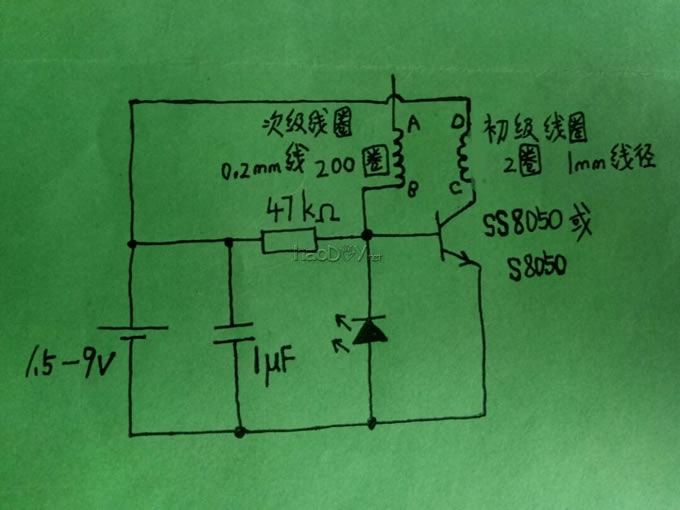 次级线圈
0.2mm线 200圈
A
B
D
C
初级线圈
2圈 1mm线径
47kΩ
SS8050或
S8050
1.5-9V
1μF